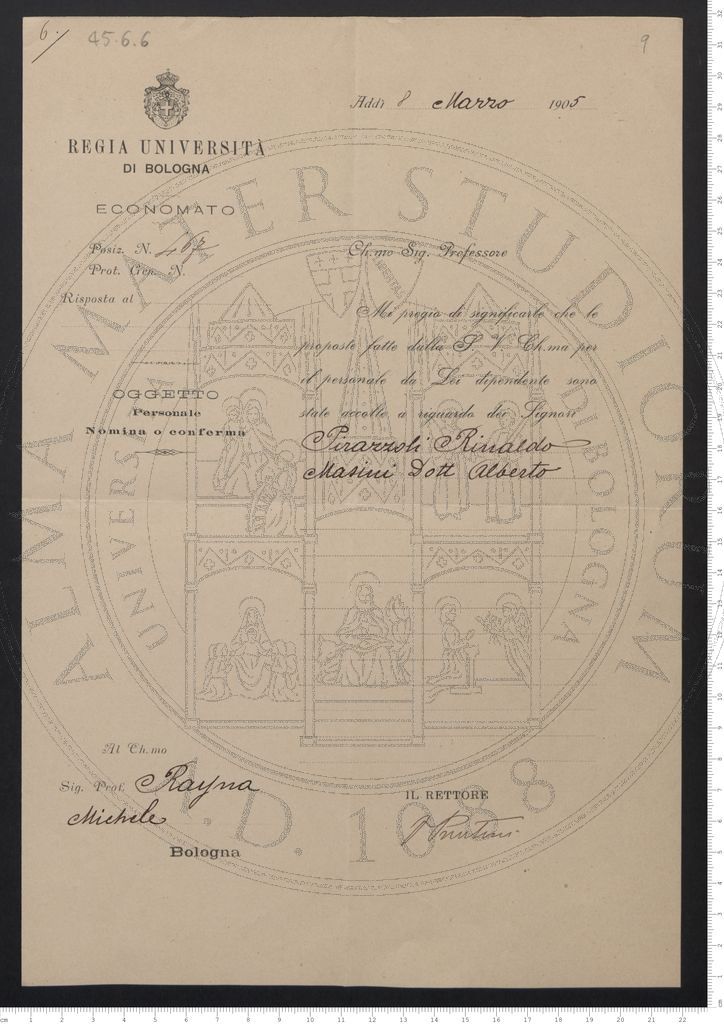 6.
45.6.6
9
Addì 8 Marzo 1905
REGIA UNIVERSITÀ
DI BOLOGNA
ECONOMATO
Posiz. N. 467
Prot. Gen. N.
Risposta al
OGGETTO
Personale
Nomina o conferma
Ch.mo Sig. Professore
Mi pregio di significarle che le
proposte fatte dalla S. V. Ch.ma per
il personale da Lei dipendente sono
state accolte a riguardo dei Signori
Pirazzoli Rinaldo
Masini Dott Alberto
Al Ch.mo
Sig. Prof. Rayna
Michele
Bologna
IL RETTORE
ALMA MATER STUDIORUM
UNIVERSITAS
DI BOLOGNA
A.D. 1088